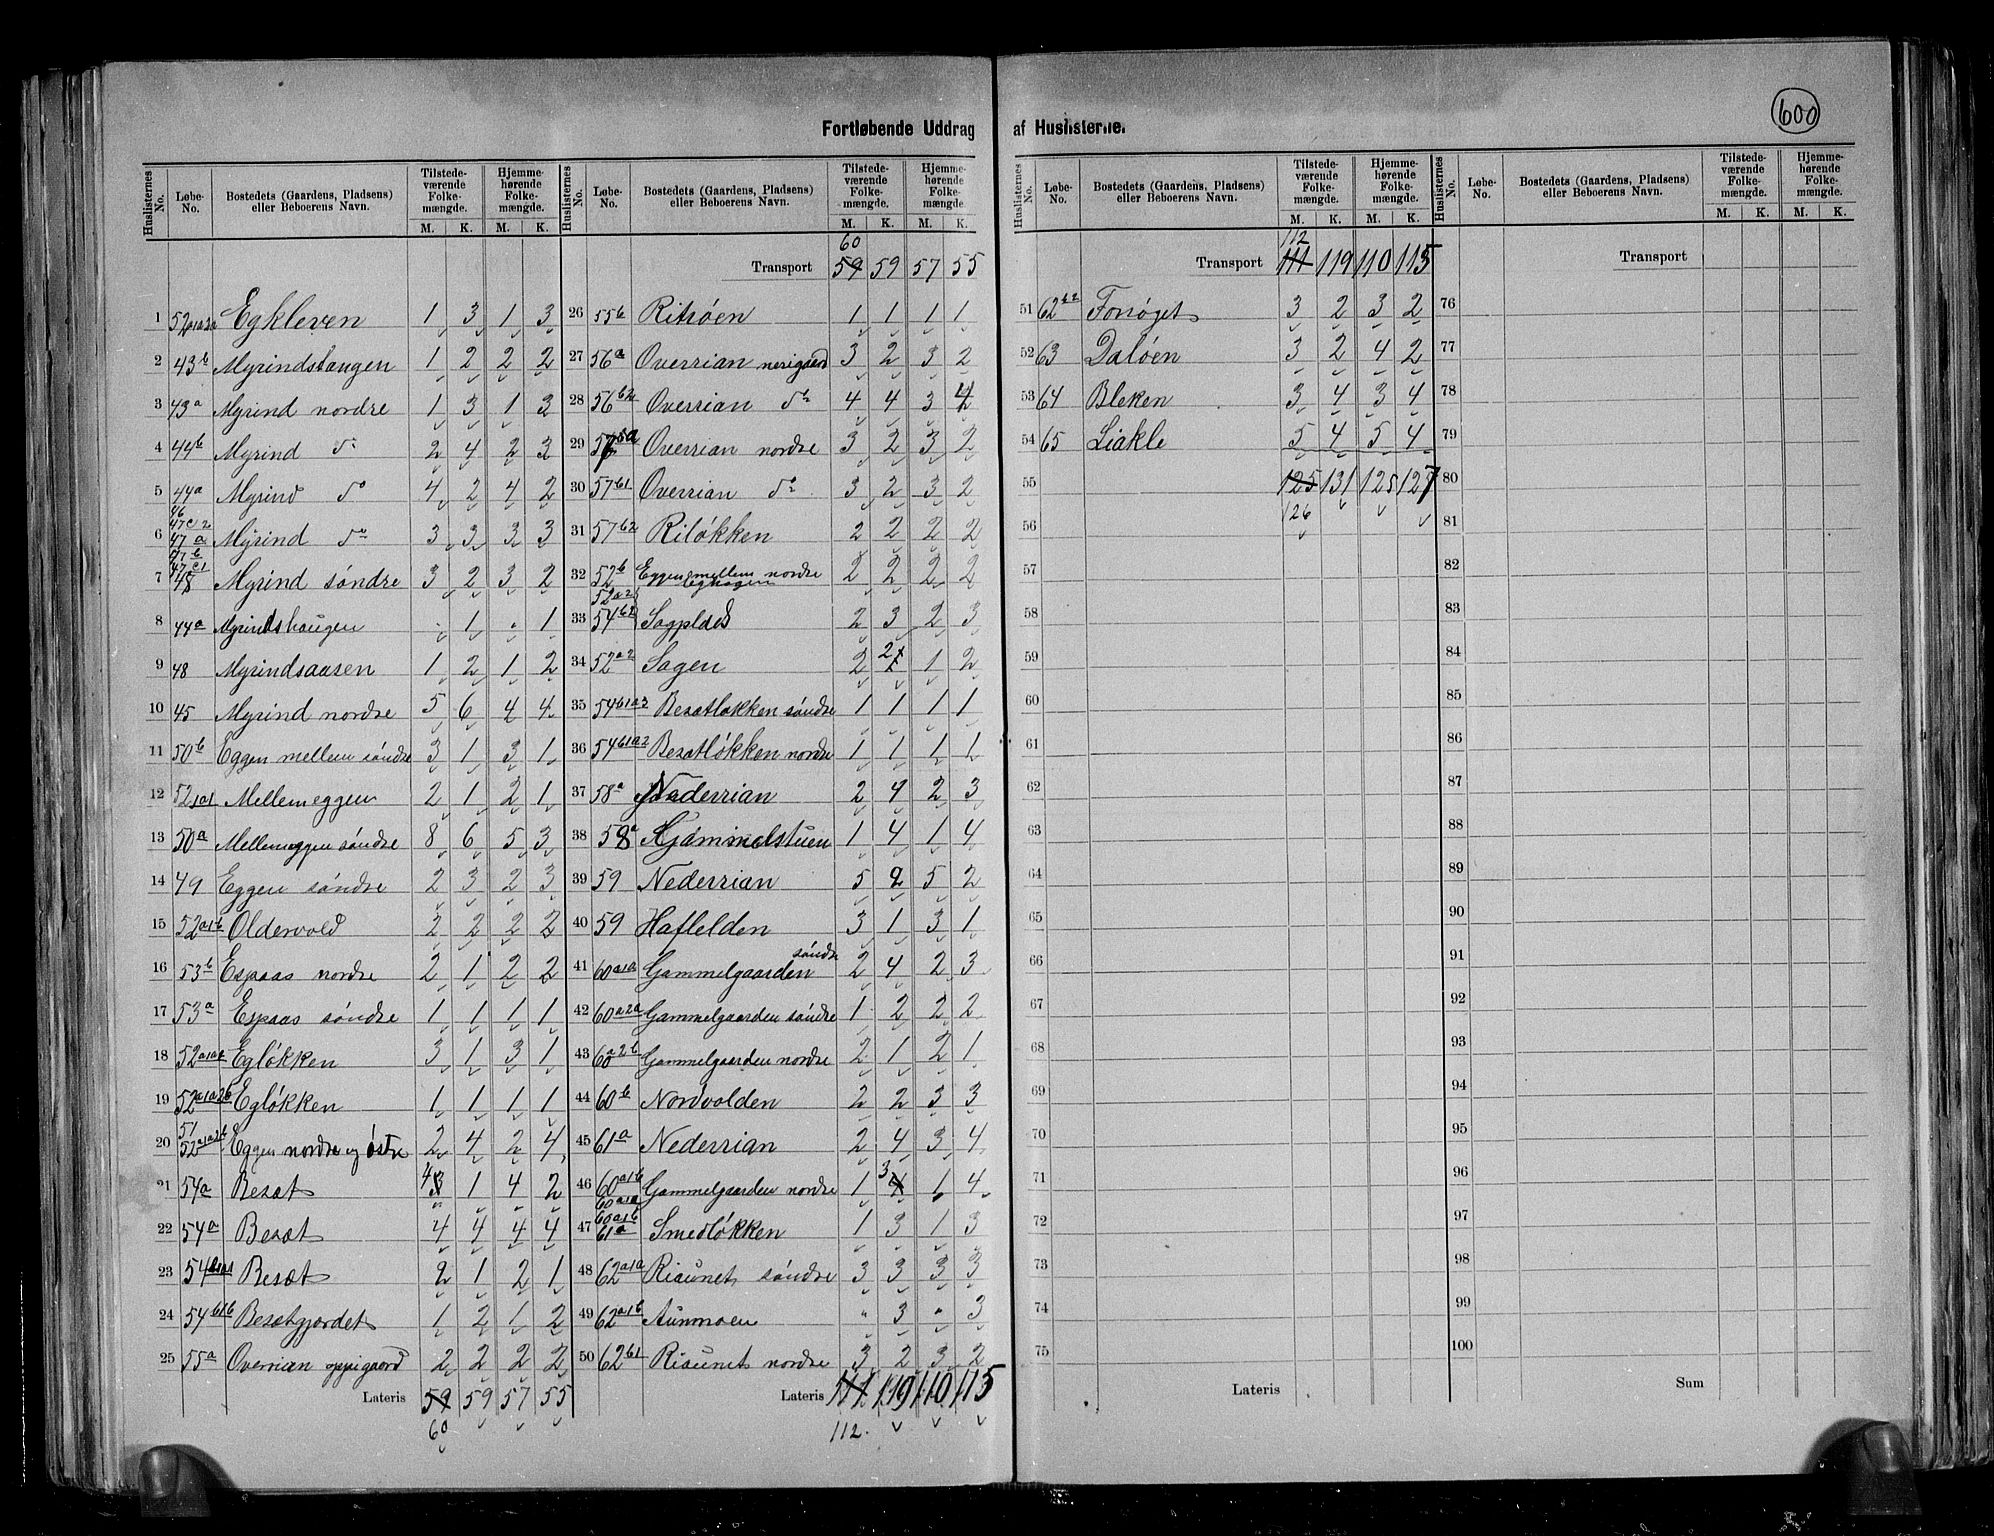 600
Fortløbende Uddrag af Huslisterne.
Huslisternes No. | Løbe-No. | Bostedets (Gaardens, Pladsens) eller Beboerens Navn. | Tilstedeværende Folkemængde. M. K. | Hjemmehørende Folkemængde. M. K.
1 Egkleven 1 3 1 3
2 43b Myrindstangen 1 2 2 2
3 43a Myrind nordre 1 3 1 3
4 44b Myrind do 2 4 2 3
5 44a Myrind do 4 2 4 2
6 46 47c2 47a Myrind do 3 3 3 3
7 47b 47c1 48 Myrind søndre 3 2 3 2
8 44a Myrindshaugen . 1 . 1
9 48 Myrindsaasen 1 2 1 2
10 45 Myrind nordre 5 6 4 4
11 50b Eggen mellem søndre 3 1 3 1
12 52a1 Mellemeggen 2 1 2 1
13 50a Mellemeggen søndre 8 6 5 3
14 49 Eggen søndre 2 3 2 3
15 52a1b Oldervold 2 2 2 2
16 53b Espaas nordre 2 1 2 2
17 53a Espaas søndre 1 1 1 1
18 Egløkken 3 1 3 1
19 52a1a2b Egløkken 1 1 1 1
20 51 52a1a2b Eggen nordre og østre 2 4 2 4
21 54a Besæt 4 3 1 4 2
22 54a Besæt 4 4 4 4
23 Besæt 2 1 2 1
24 54b1b Besætgjordet 1 2 1 2
25 55a Overrian oppigaard 2 2 2 2
Lateris 59 59 57 55
60
60
Transport 59 59 57 55
26 55b Ritrøen 1 1 1 1
27 56a Overrian nerigaard 3 2 3 2
28 Overrian do 4 4 3 4
29 Overrian nordre 3 2 3 2
30 57b1 Overrian do 3 2 3 2
31 57b2 Riløkken 2 2 2 2
32 52b Eggen mellem nordre Eghagen 2 2 2 2
33 52a2 54b2 Sagplads 2 3 2 3
34 52a2 Sagen 2 2 1 2
35 54b1a2 Besætløkken søndre 1 1 1 1
36 54b1a2 Besætløkken nordre 1 1 1 1
37 58a Nederrian 2 4 2 3
38 58a Gammelstuen 1 4 1 4
39 59 Nederrian 5 2 5 2
40 59 Haflelden 3 1 3 1
41 60a1a Gammelgaarden søndre 2 4 2 3
42 60a2a Gammelgaarden søndre 1 2 2 2
43 60a2b Gammelgaarden nordre 2 1 2 1
44 60b Nordvolden 2 2 3 3
45 61a Nederrian 2 4 3 4
46 60a1b Gammelgaarden nordre 1 3 4 1 4
47 60a1a 60a1b 61a Smedløkken 1 3 1 3
48 62a1a Riaunet søndre 3 3 3 3
49 62a1b Aunmoen " 3 " 3
50 62b1 Riaunet nordre 3 2 3 2
Lateris 111 119 110 115
112
Huslisternes No. | Løbe-No. | Bostedets (Gaardens, Pladsens) eller Beboerens Navn. | Tilstedeværende Folkemængde. M. K. | Hjemmehørende Folkemængde. M. K.
112
Transport 111 119 110 115
51 62b2 Forsøget 3 2 3 2
52 63 Daløen 3 2 4 2
53 64 Bleken 3 4 3 4
54 65 Liakle 5 4 5 4
55 125 131 125 127
56 126
57
58
59
60
61
62
63
64
65
66
67
68
69
70
71
72
73
74
75
Lateris
Transport
76
77
78
79
80
81
82
83
84
85
86
87
88
89
90
91
92
93
94
95
96
97
98
99
100
Sum